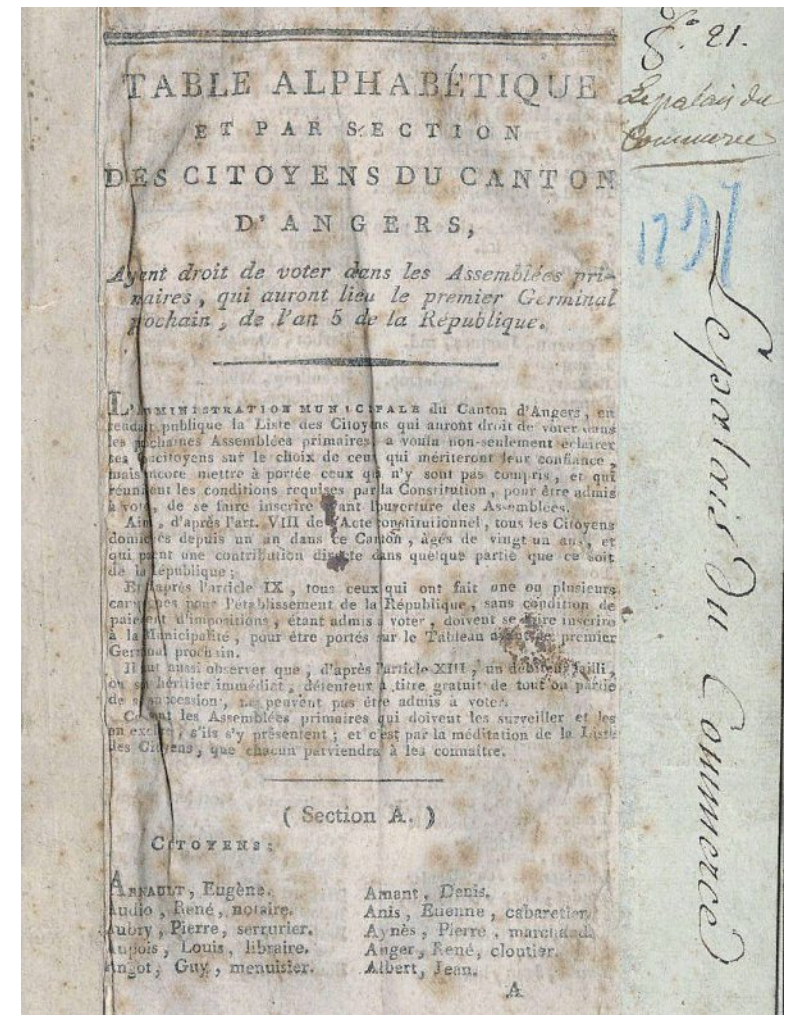 TABLE ALPHABÉTIQUE
ET PAR SECTION
DES CITOYENS DU CANTON
D'ANGERS,
Ayant droit de voter dans les Assemblées pri-
maires, qui auront lieu le premier Germinal
prochain, de l'an 5 de la République.
L'ADMINISTRATION MUNICIPALE du Canton d'Angers, en
rendant publique la Liste des Citoyens qui auront droit de voter dans
les prochaines Assemblées primaires, a voulu non-seulement éclairer
ses concitoyens sur le choix de ceux qui mériteront leur confiance,
mais encore mettre à portée ceux qui n'y sont pas compris, et qui
réunissent les conditions requises par la Constitution, pour être admis
à voter, de se faire inscrire avant l'ouverture des Assemblées.
Ainsi, d'après l'art. VIII de l'Acte constitutionnel, tous les Citoyens
domiciliés depuis un an dans ce Canton, âgés de vingt un ans, et
qui paient une contribution directe dans quelque partie que ce soit
de la République;
Et d'après l'article IX, tous ceux qui ont fait une ou plusieurs
campagnes pour l'établissement de la République, sans condition de
paiement d'impositions, étant admis à voter, doivent se faire inscrire
à la Municipalité, pour être portés sur le Tableau avant le premier
Germinal prochain.
Il faut aussi observer que, d'après l'article XIII, un débiteur failli,
ou son héritier immédiat, détenteur à titre gratuit de tout ou partie
de sa succession, ne peuvent pas être admis à voter.
Ce sont les Assemblées primaires qui doivent les surveiller et les
en exclure, s'ils s'y présentent; et c'est par la méditation de la Liste
des Citoyens, que chacun parviendra à les connaître.
( Section A. )
CITOYENS:
ARNAULT, Eugène.
Audio, René, notaire.
Aubry, Pierre, serrurier.
Aupois, Louis, libraire.
Angot, Guy, menuisier.
Amant, Denis.
Anis, Etienne, cabaretier.
Aynès, Pierre, marchand.
Anger, René, cloutier.
Albert, Jean.
A
21.
Le palais du
Commerce
1797
Le palais Du Commerce